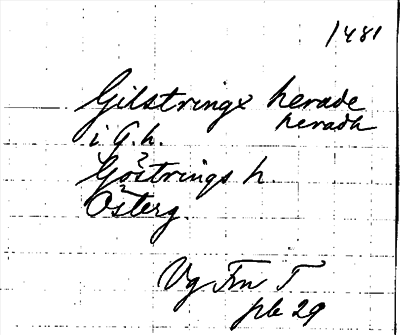 1481
Gilstringx herade
heradh
i G. h.
Göstrings h.
Österg.
Vg Fn I
pb 29